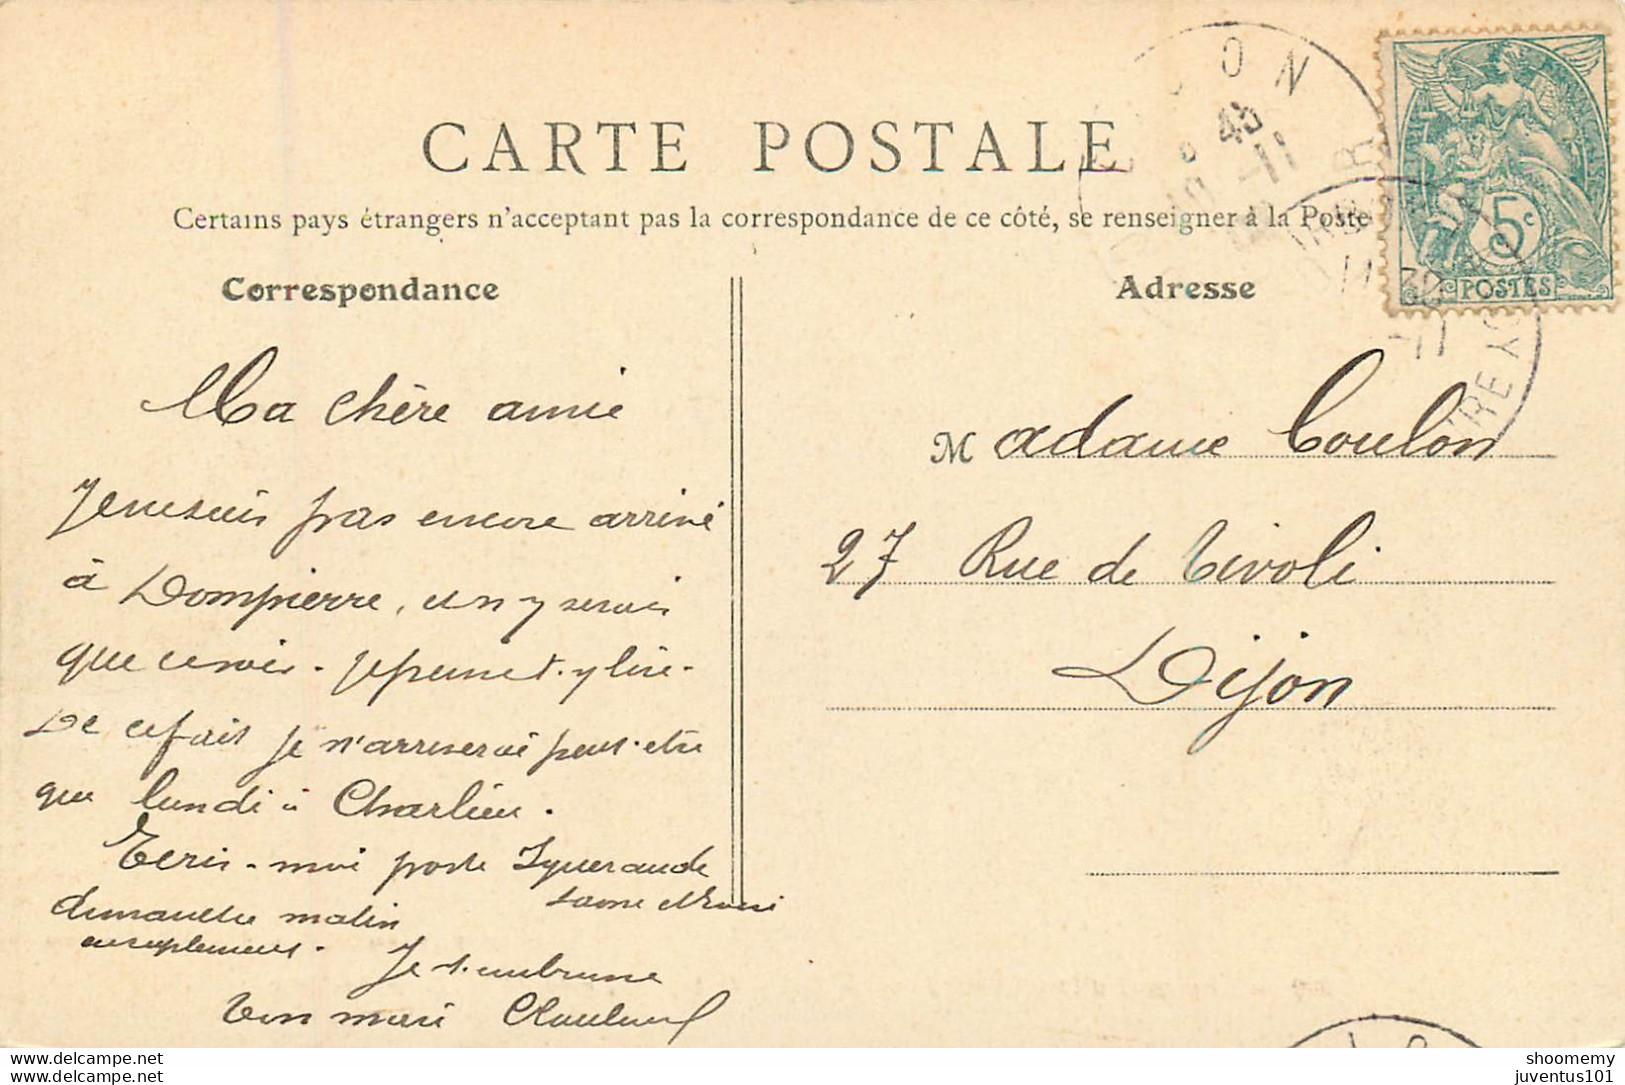 CARTE POSTALE
Certains pays étrangers n'acceptant pas la correspondance de ce côté, se renseigner à la Poste
Correspondance
Adresse
5c
POSTES
11 30
-11
45
-11
ON
Ma chère amie
Je ne suis pas encore arrivé
à Dompierre, et n'y serai
que ce soir. Je peux t'y lire.
De ce fait je n'arriverai peut-etre
que lundi à Charlieu.
Ecris-moi poste Iguerande
Saone et Loire
dimanche matin
simplement.
Je t'embrasse
Ton mari
Madame Coulon
27 Rue de Tivoli
Dijon
luc.com
luc.com
shoomemy
juventus101